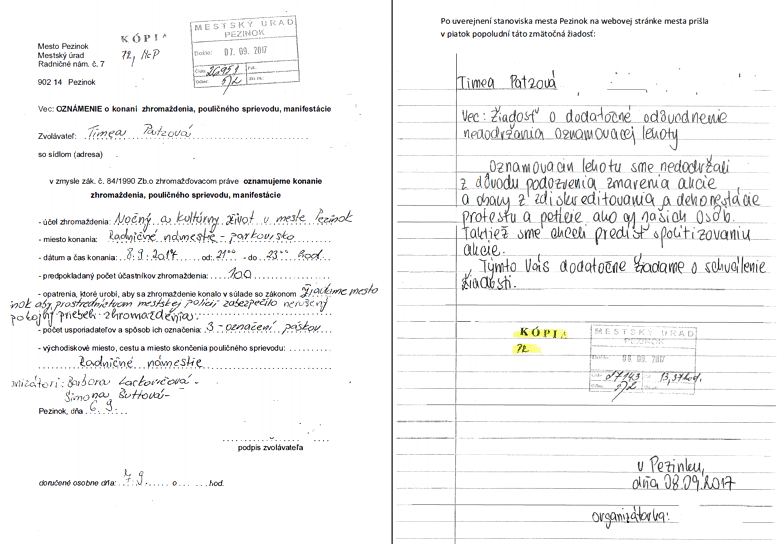 Mesto Pezinok
Mestský úrad
Radničné nám. č. 7
902 14 Pezinok
KÓPIA
MESTSKÝ ÚRAD
PEZINOK
Došlo: 07. 09. 2017
Vec: OZNÁMENIE o konaní zhromaždenia, pouličného sprievodu, manifestácie
Zvolávateľ: Timea Patzová
so sídlom (adresa)
v zmysle zák. č. 84/1990 Zb.o zhromažďovacom práve oznamujeme konanie
zhromaždenia, pouličného sprievodu, manifestácie
- účel zhromaždenia: Nočný a kultúrny život v meste Pezinok
- miesto konania: Radničné námestie - parkovisko
- dátum a čas konania: 8.9.2017 od: 21°° - do 23°° hod
- predpokladaný počet účastníkov zhromaždenia: 100
- opatrenia, ktoré urobí, aby sa zhromaždenie konalo v súlade so zákonom žiadame mesto
inok aby prostredníctvom mestskej polície zabezpečilo nerušený
pokojný priebeh zhromaždenia.
- počet usporiadateľov a spôsob ich označenia: 3 - označení páskou
- východiskové miesto, cestu a miesto skončenia pouličného sprievodu:
Radničné námestie
Barbora Lackovičová -
Simona Šuttová -
Pezinok, dňa 6.9.
podpis zvolávateľa
doručené osobne dňa: 7.9. o hod.
Po uverejnení stanoviska mesta Pezinok na webovej stránke mesta prišla
v piatok popoludní táto zmätočná žiadosť:
Timea Patzová
Vec: Žiadosť o dodatočné odôvodnenie
nedodržania oznamovacej lehoty
Oznamovaciu lehotu sme nedodržali
z dôvodu podozrenia zmarenia akcie
a obavy z zdiskreditovania a dehonestácie
protestu a petície ako aj našich osôb.
Taktiež sme chceli predísť spolitizovaniu
akcie.
Týmto Vás dodatočne žiadame o schválenie
žiadosti.
KÓPIA
MESTSKÝ ÚRAD
PEZINOK
08. 09. 2017
27143 13,37 hod.
v Pezinku,
dňa 08.09.2017
organizátorka: